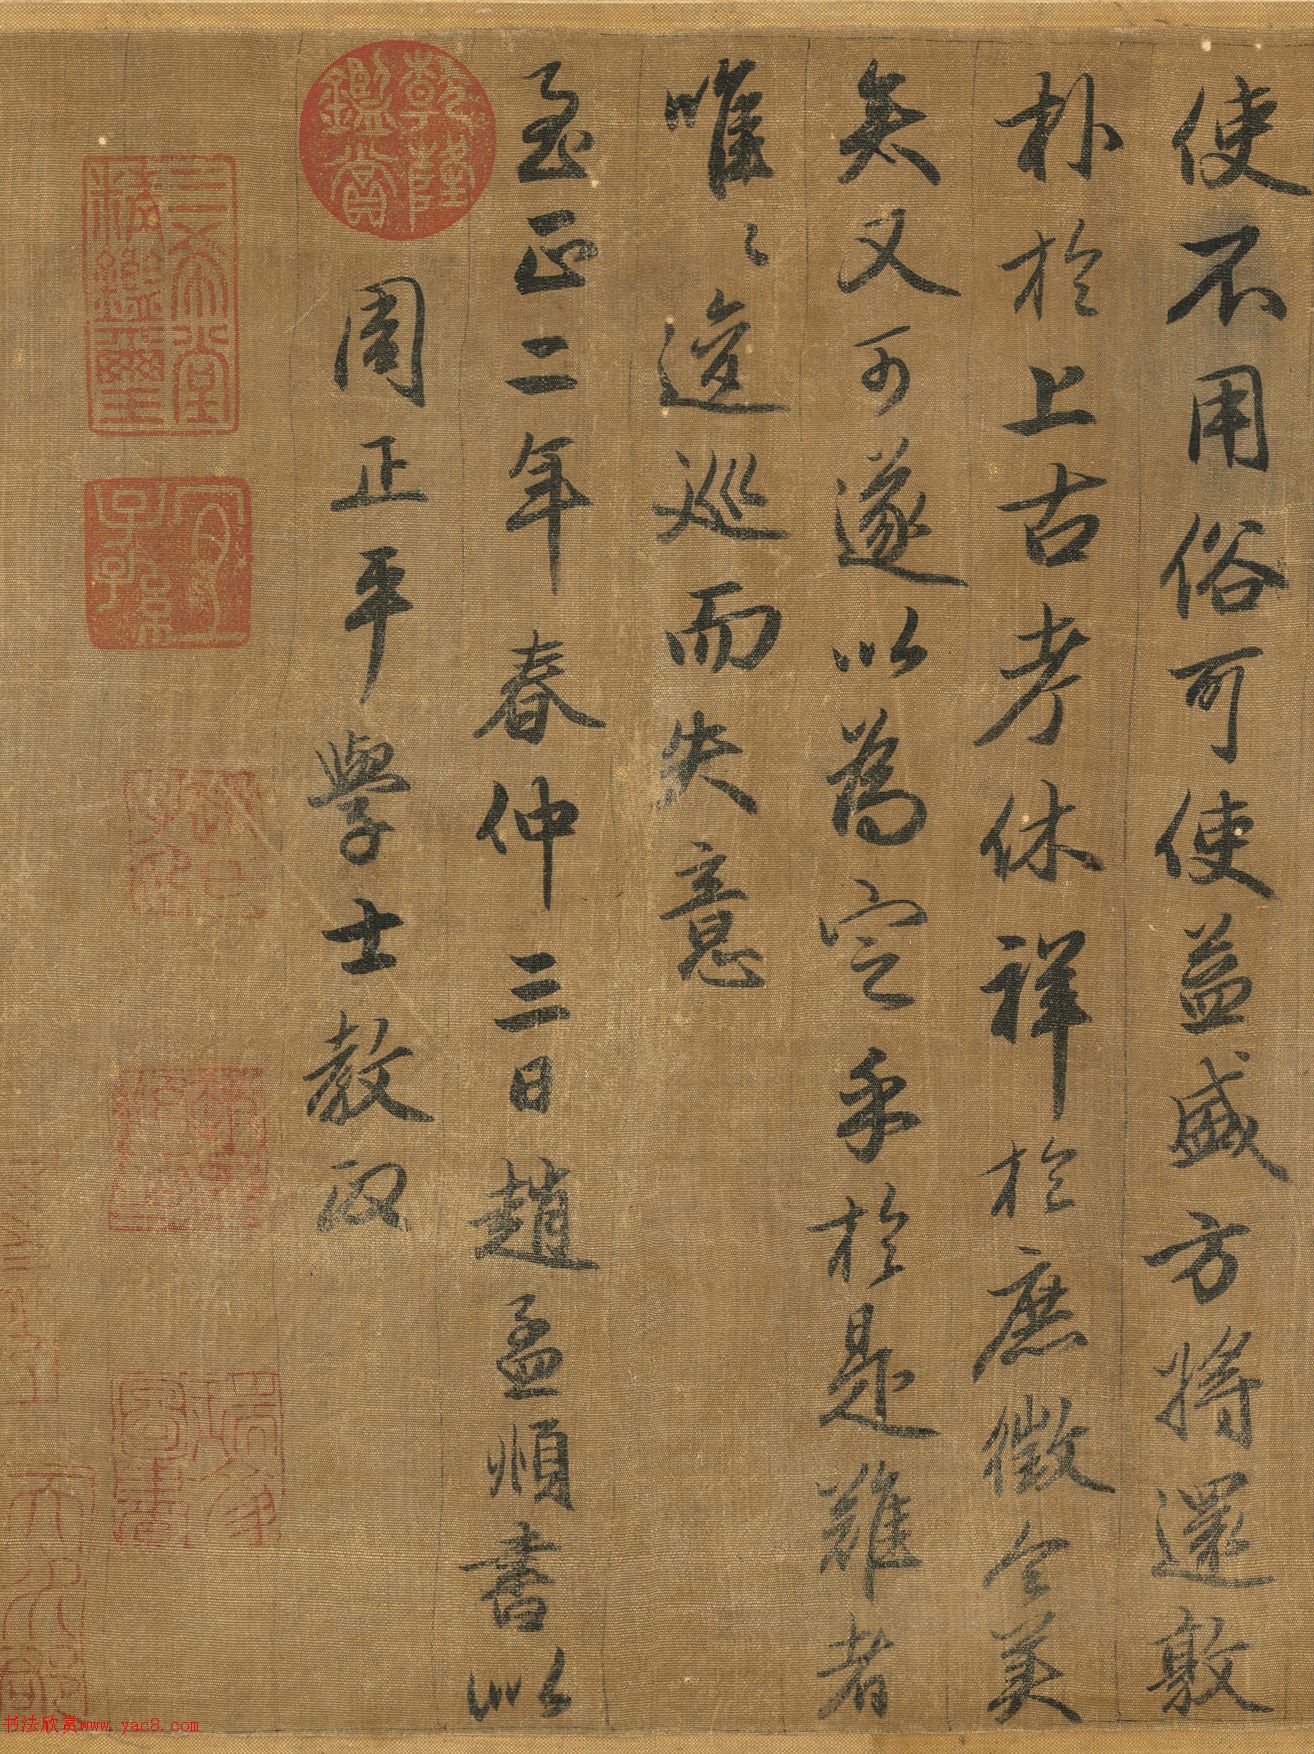 使不用俗可使益盛方将還敦
朴於上古考休祥於庶徵今美
矣又可遂以為定乎於是難者
唯〻逡巡而失意
至正二年春仲三日趙孟順書以
周正平學士教政
乾隆鑑賞
三希堂精鑑璽
宜子孫
书法欣赏www.yac8.com